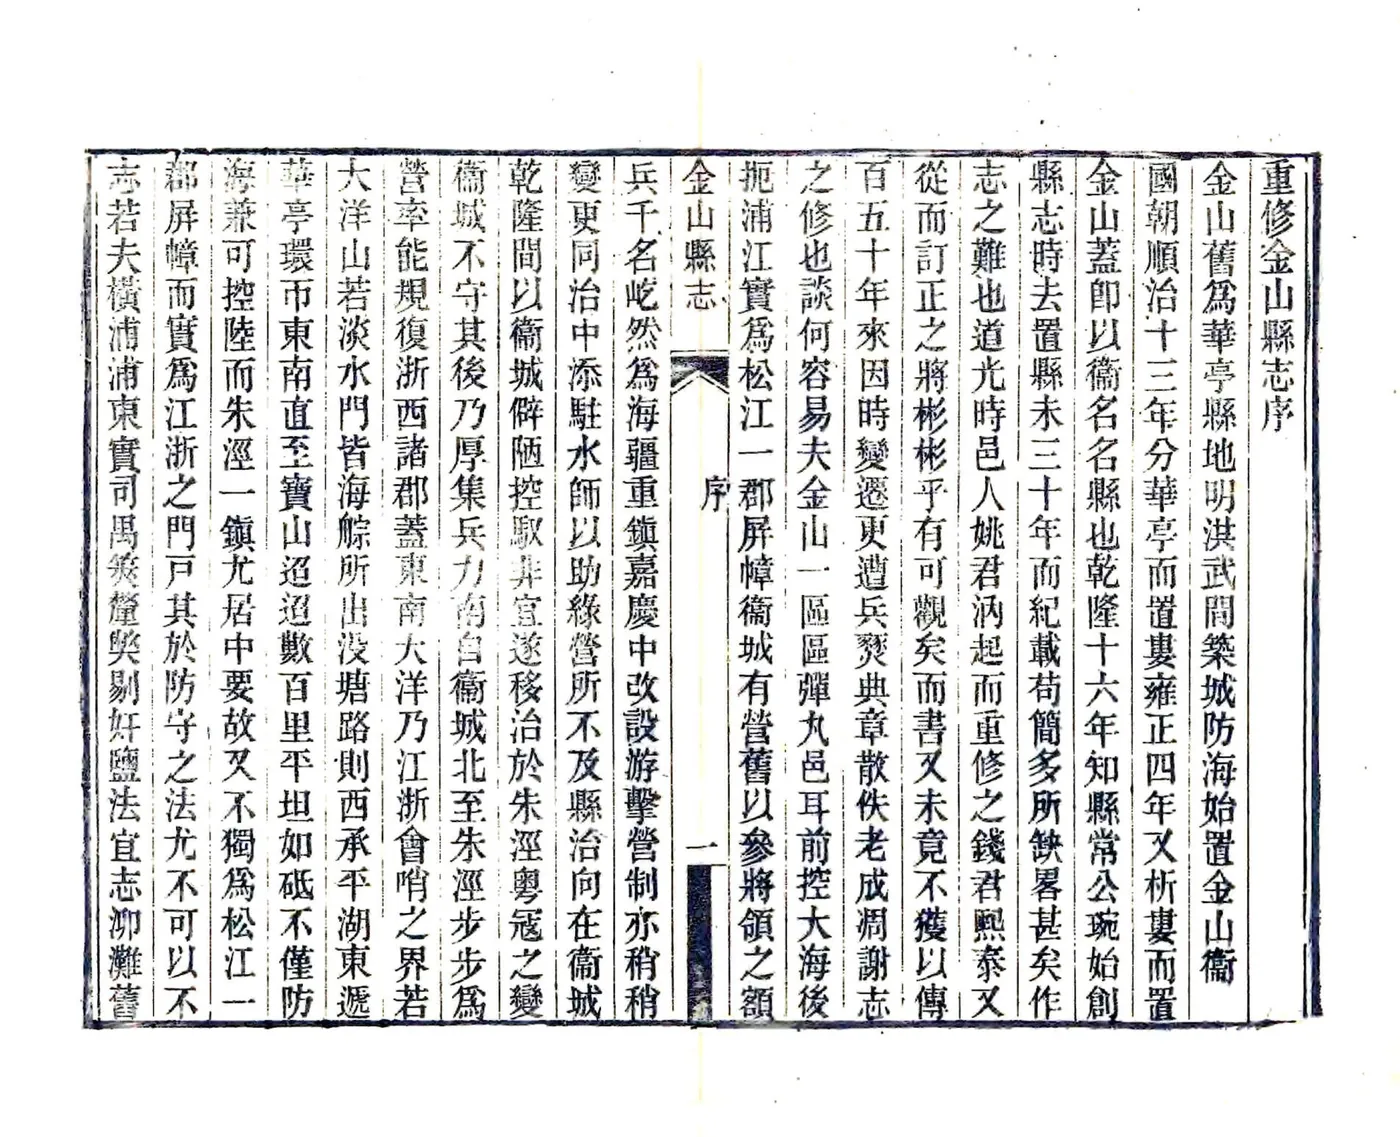 重修金山縣志序
金山舊爲華亭縣地明洪武間築城防海始置金山衞
國朝順治十三年分華亭而置婁雍正四年又析婁而置
金山蓋卽以衞名名縣也乾隆十六年知縣常公琬始創
縣志時去置縣未三十年而紀載苟簡多所缺畧甚矣作
志之難也道光時邑人姚君汭起而重修之錢君熙泰又
從而訂正之將彬彬乎有可觀矣而書又未竟不獲以傳
百五十年來因時變遷更遭兵燹典章散佚老成凋謝志
之修也談何容易夫金山一區區彈丸邑耳前控大海後
扼浦江實爲松江一郡屏幛衞城有營舊以參將領之額
金山縣志
序
一
兵千名屹然爲海疆重鎭嘉慶中改設游擊營制亦稍稍
變更同治中添駐水師以助綠營所不及縣治向在衞城
乾隆間以衞城僻陋控馭非宜遂移治於朱涇粵寇之變
衞城不守其後乃厚集兵力南自衞城北至朱涇步步爲
營率能規復浙西諸郡蓋東南大洋乃江浙會哨之界若
大洋山若淡水門皆海艅所出沒塘路則西承平湖東遞
華亭環帀東南直至寶山迢迢數百里平坦如砥不僅防
海兼可控陸而朱涇一鎭尤居中要故又不獨爲松江一
郡屏幛而實爲江浙之門戸其於防守之法尤不可以不
志若夫橫浦浦東實司禺筴釐獘剔奸鹽法宜志泖灘舊